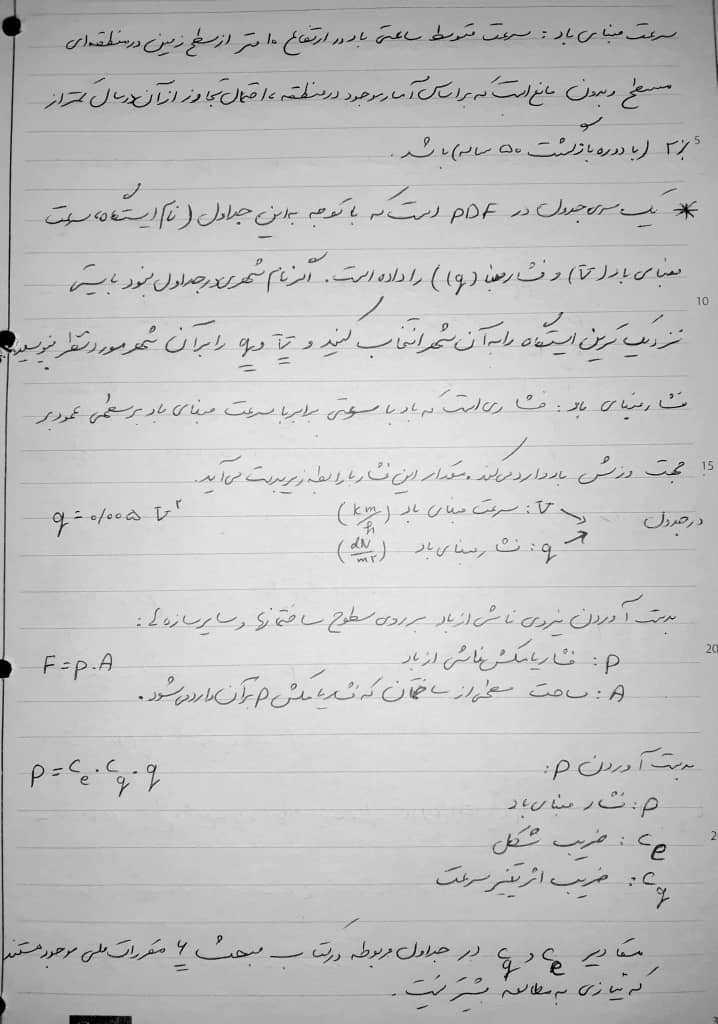 سرعت مبنای باد: سرعت متوسط ساعتی باد در ارتفاع ۱۰ متر از سطح زمین در منطقه‌ای
مسطح و بدون مانع است که بر اساس آمار موجود در منطقه، احتمال تجاوز از آن در سال کمتر از
۲٪ (با دوره بازگشت ۵۰ ساله) باشد.
* یک سری جدول در PDF است که با توجه به این جداول (نام ایستگاه، سرعت
مبنای باد (V) و فشار مبنا (q)) را داده است. اگر نام شهری در جداول نبود بایستی
نزدیک ترین ایستگاه را به آن شهر انتخاب کنید و V و q را برای آن شهر مورد نظر بنویسید
فشار مبنای باد: فشاری است که باد با سرعتی برابر با سرعت مبنای باد بر سطحی عمود بر
جهت وزش باد وارد می‌کند. مقدار این فشار با رابطه زیر بدست می‌آید.
در جدول V: سرعت مبنای باد (km/h) q = 0/005 V²
q: فشار مبنای باد (dN/m²)
بدست آوردن نیروی ناشی از باد بر روی سطوح ساختمانها و سایر سازه ها:
P: فشار یا مکش ناشی از باد F = P.A
A: مساحت سطحی از ساختمان که فشار یا مکش P بر آن وارد می‌شود.
بدست آوردن P: P = Ce . Cq . q
P: فشار مبنای باد
Ce: ضریب شکل
Cq: ضریب اثر تغییر سرعت
مقادیر Ce و Cq در جداول مربوطه در کتاب مبحث ۶ مقررات ملی موجود هستند
که نیازی به مطالعه بیشتر نیست.